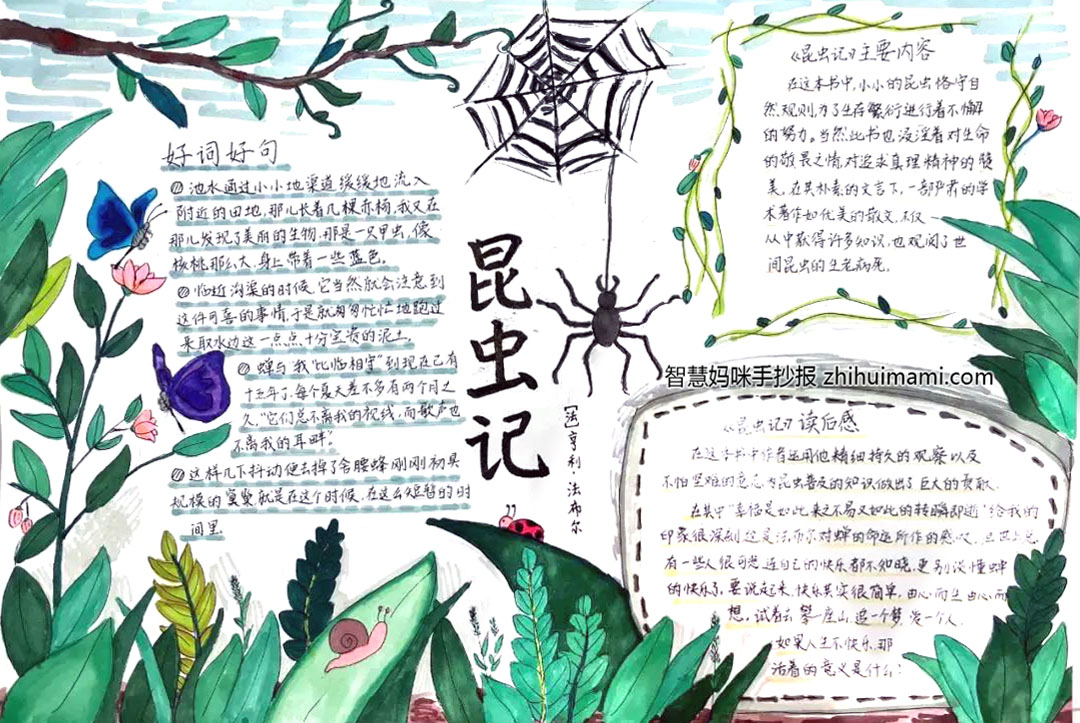 好词好句
池水通过小小地渠道缓缓地流入
附近的田地,那儿长着几棵赤杨,我又在
那儿发现了美丽的生物,那是一只甲虫,像
核桃那么大,身上带着一些蓝色。
临近沟渠的时候,它当然就会注意到
这件可喜的事情,于是就匆匆忙忙地跑过
来取水边这一点点、十分宝贵的泥土。
蝉与我“比临相守”到现在已有
十五年了,每个夏天差不多有两个月之
久,“它们总不离我的视线,而歌声也
不离我的耳畔”。
这样几下抖动便去掉了舍腰蜂刚刚初具
规模的窠巢就是在这个时候,在这么短暂的时
间里.
昆虫记
[法]亨利法布尔
《昆虫记》主要内容
在这本书中,小小的昆虫恪守自
然规则,为了生存繁衍进行着不懈
的努力。当然此书也浸淫着对生命
的敬畏之情,对追求真理精神的赞
美,在其朴素的文言下,一部严肃的学
术著作如优美的散文,不仅
从中获得许多知识,也观阅了世
间昆虫的生老病死。
智慧妈咪手抄报 zhihuimami.com
《昆虫记》读后感
在这本书中作者运用他精细持久的观察以及
不怕坚难的意志,为昆虫普及的知识做出了巨大的贡献.
在其中“幸福是如此来之不易又如此的转瞬即逝”给我的
印象很深刻,这是法布尔对蝉的命运所作的感叹,
有一些人很可悲连自己的快乐都不知晓,更别谈懂蝉
的快乐了,要说起来,快乐其实很简单,由心而生由心而
想,试着去攀一座山,追一个梦,爱一个人.
如果人生不快乐,那
活着的意义是什么?